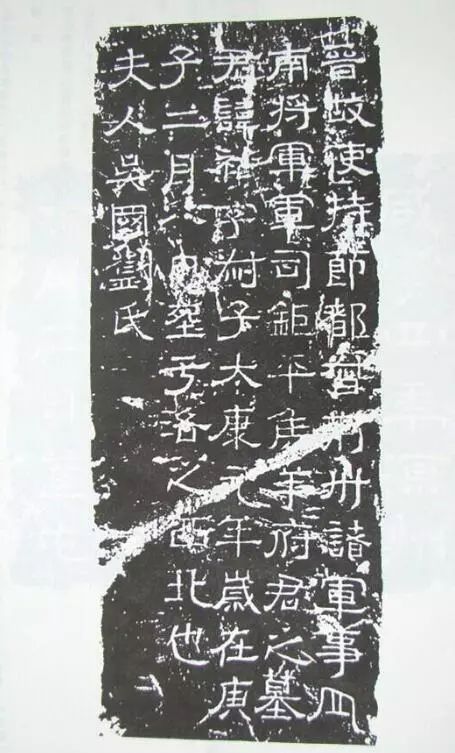 晉故使持節都督荊州諸軍事
南將軍軍司鉅平侯羊府君之墓
君諱祜字子太康元年歲在庚
子二月于洛之西北也
夫人吳國氏